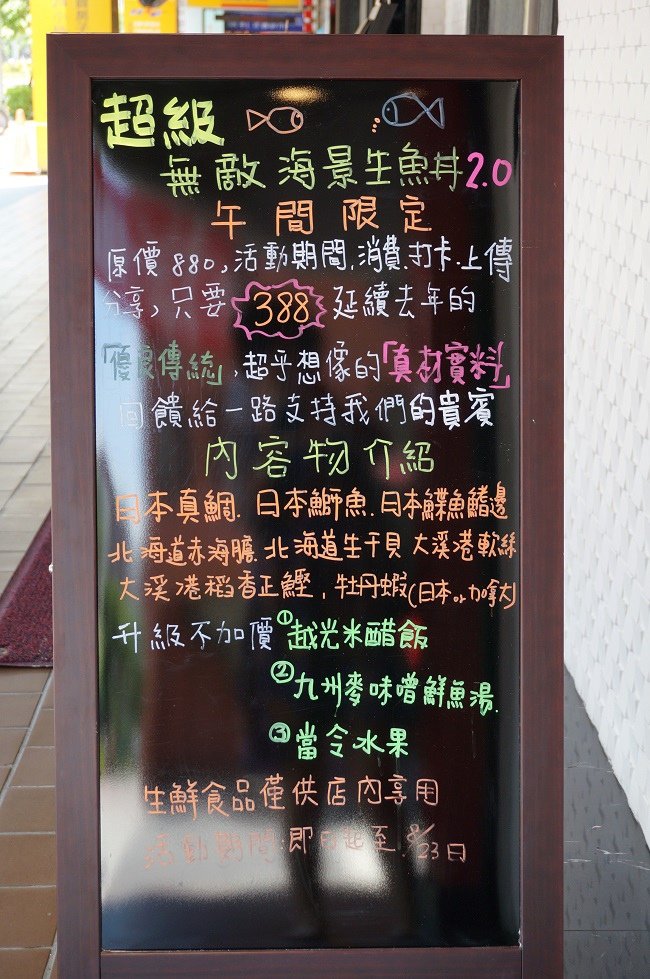 超級
無敵海景生魚丼2.0
午間限定
原價880,活動期間,消費.打卡.上傳
分享,只要 388 延續去年的
「優良傳統」,超乎想像的「真材實料」
回饋給一路支持我們的貴賓
內容物介紹
日本真鯛.日本鰤魚.日本鰈魚鰭邊
北海道赤海膽.北海道生干貝 大溪港軟絲
大溪港稻香正鰹,牡丹蝦(日本or加拿大)
升級不加價 ①越光米醋飯
②九州麥味噌鮮魚湯.
③當令水果
生鮮食品僅供店內享用
活動期間:即日起至8/23日